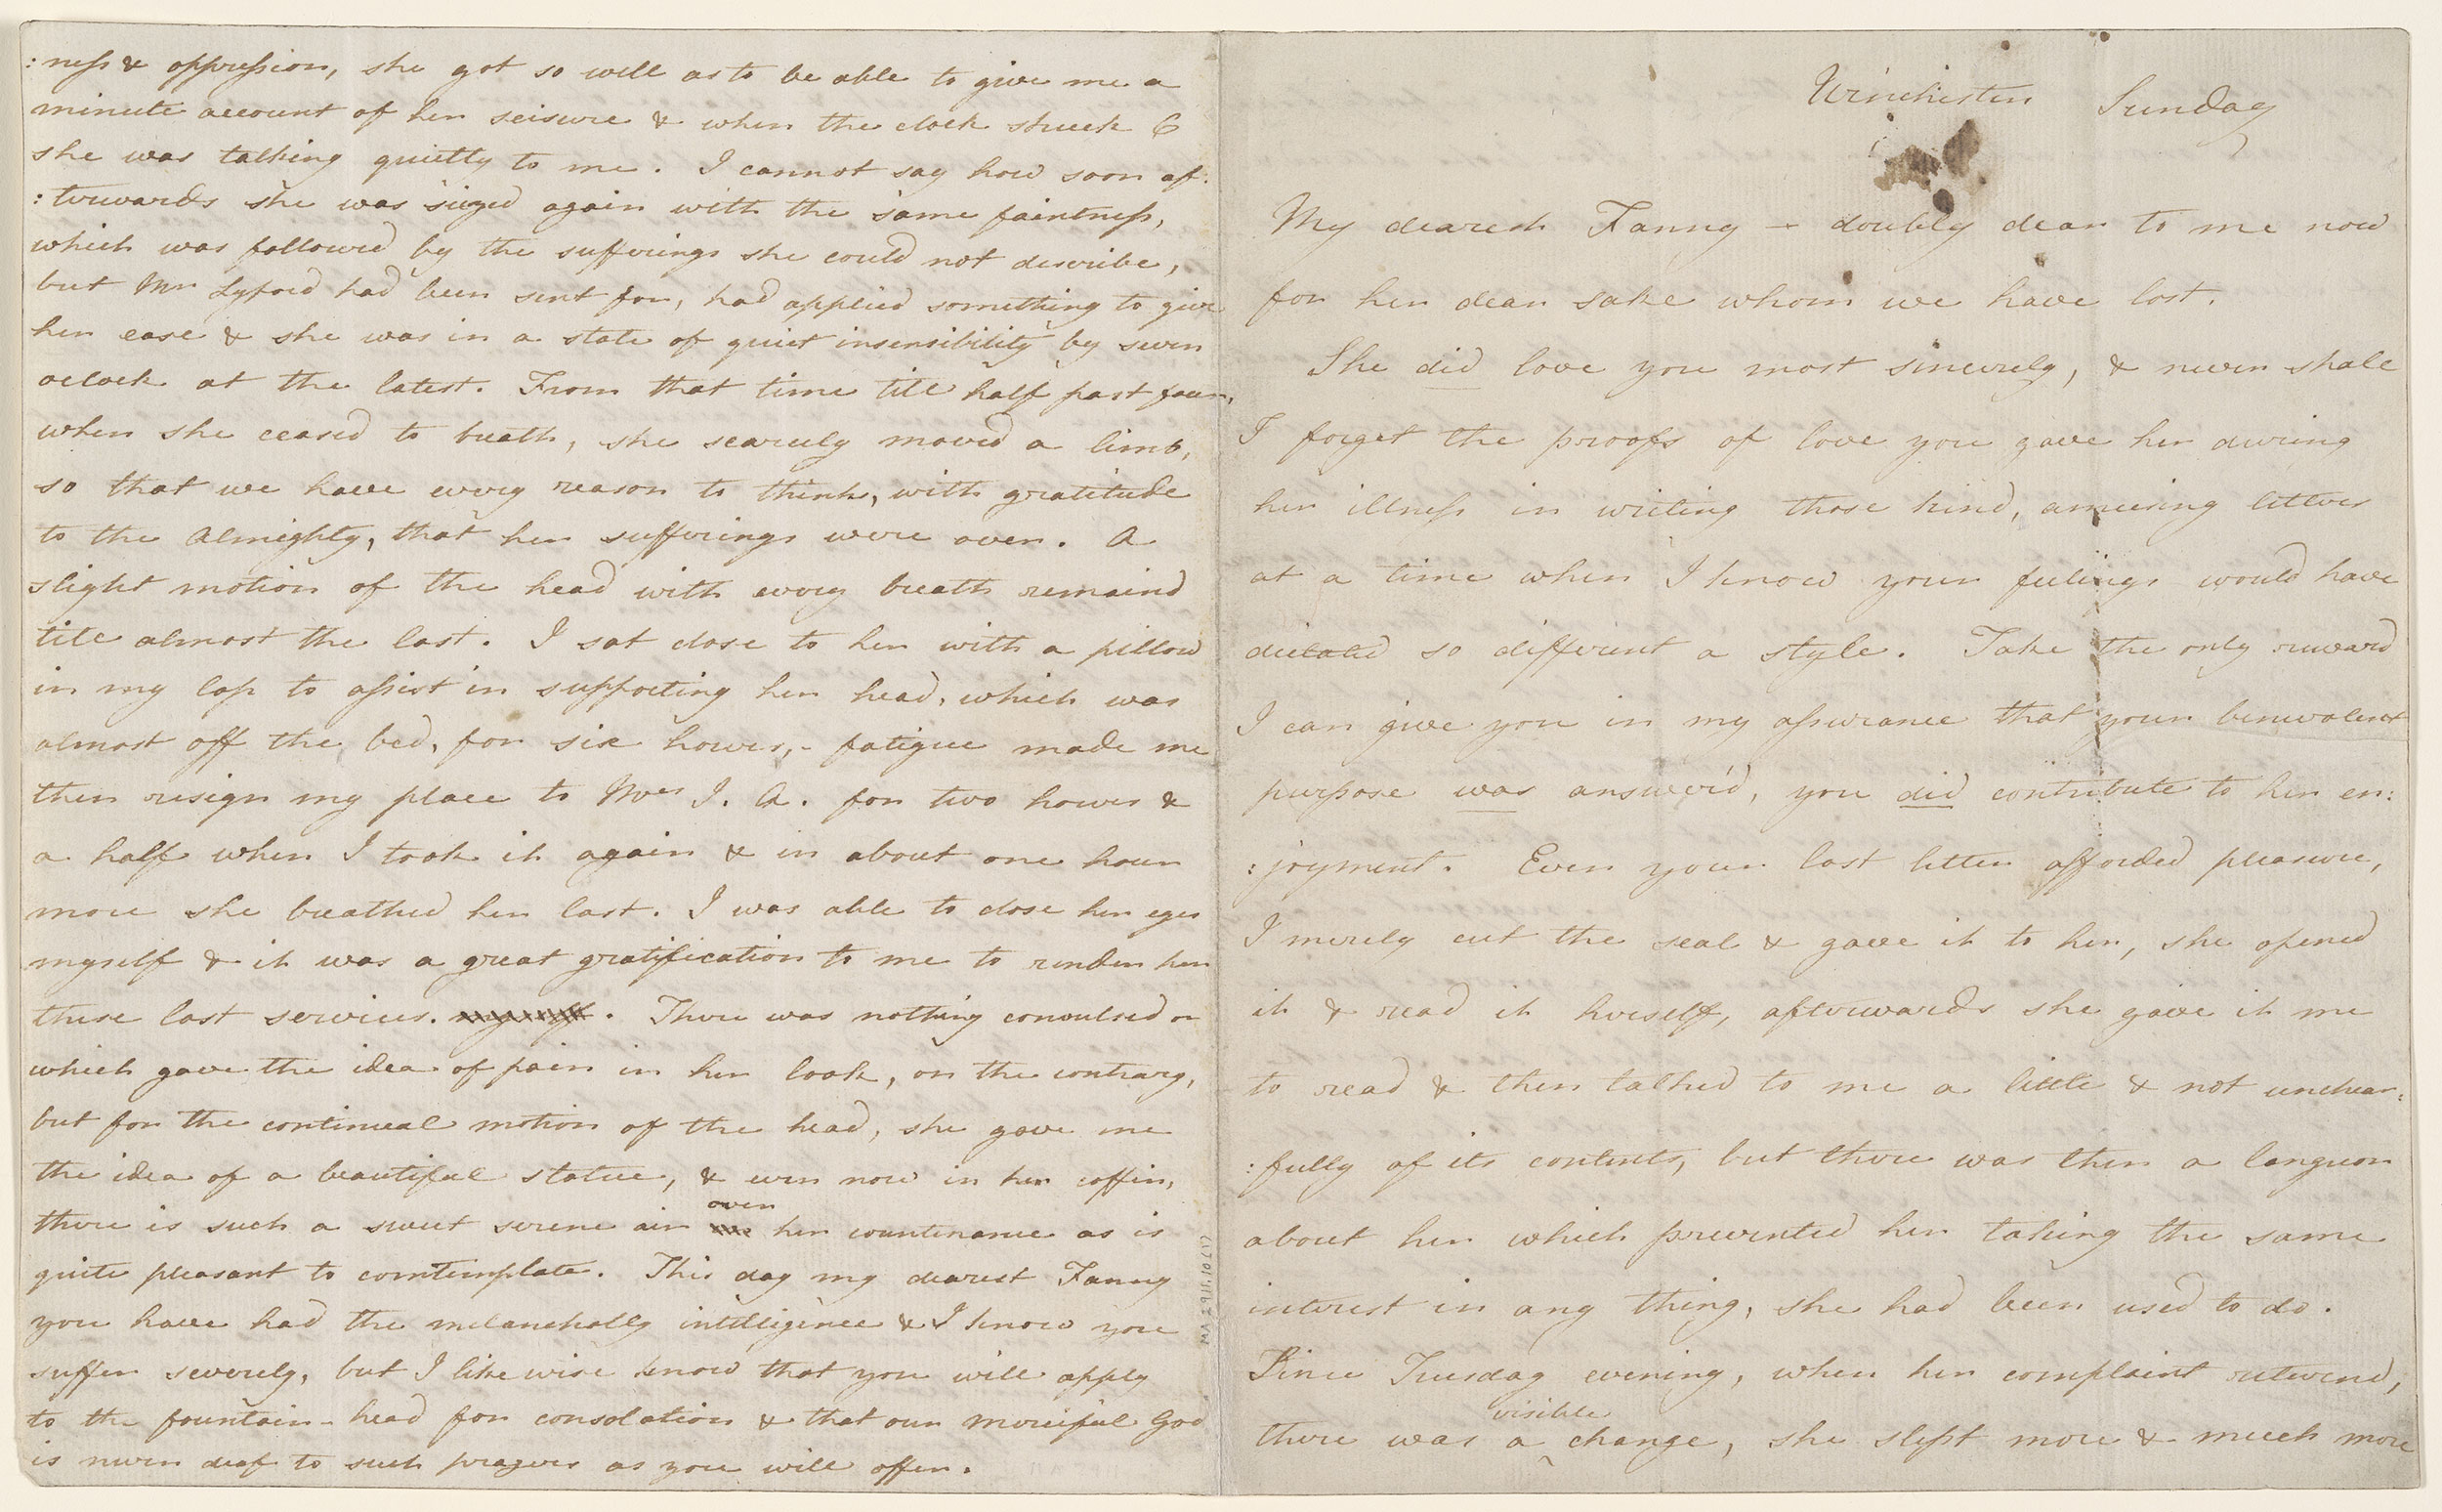 :ness & oppression, she got so well as to be able to give me a
minute account of her seisure & when the clock struck 6
she was talking quietly to me. I cannot say how soon af:
:terwards she was siezed again with the same faintness,
which was followed by the sufferings she could not describe,
but Mr Lyford had been sent for, had applied something to give
her ease & she was in a state of quiet insensibility by seven
oclock at the latest. From that time till half past four,
when she ceased to breath, she scarcely moved a limb,
so that we have every reason to think, with gratitude
to the Almighty, that her sufferings were over. A
slight motion of the head with every breath remaind
till almost the last. I sat close to her with a pillow
in my lap to assist in supporting her head, which was
almost off the bed, for six hours, - fatigue made me
then resign my place to Mrs J. A. for two hours &
a half when I took it again & in about one hour
more she breathed her last. I was able to close her eyes
myself & it was a great gratification to me to render her
these last services. myself. There was nothing convulsed or
which gave the idea of pain in her look, on the contrary,
but for the continual motion of the head, she gave me
the idea of a beautiful statue, & even now in her coffin,
there is such a sweet serene air over her countenance as is
quite pleasant to comtemplate. This day my dearest Fanny
you have had the melancholly intelligence & I know you
suffer severely, but I likewise know that you will apply
to the fountain-head for consolation & that our merciful God
is never deaf to such prayers as you will offer.
MA 2911.10(1)
Winchester Sunday
My dearest Fanny - doubly dear to me now
for her dear sake whom we have lost.
She did love you most sincerely, & never shall
I forget the proofs of love you gave her during
her illness in writing those kind, amusing letters
at a time when I know your feelings would have
dictated so different a style. Take the only reward
I can give you in my assurance that your benevolent
purpose was answer'd, you did contribute to her en:
:joyment. Even your last letter afforded pleasure,
I merely cut the seal & gave it to her, she opened
it & read it herself, afterwards she gave it me
to read & then talked to me a little & not unchear:
:fully of its contents, but there was then a languor
about her which prevented her taking the same
interest in any thing, she had been used to do.
Since Tuesday evening, when her complaint returnd,
there was a visible change, she slept more & much more